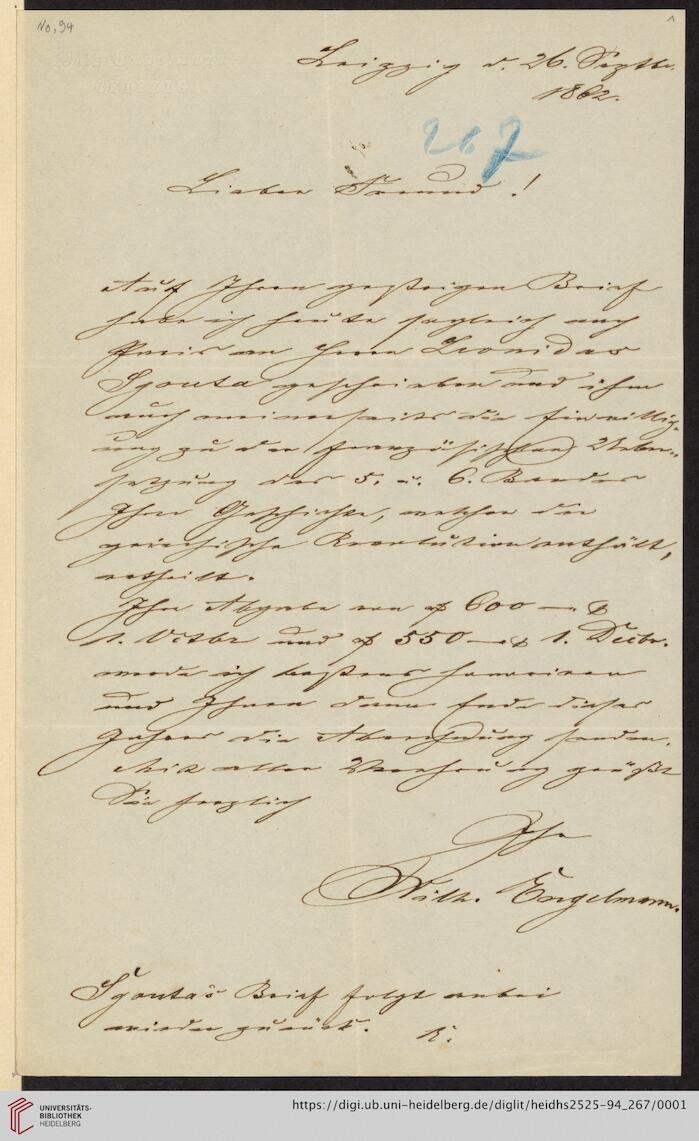 No. 94
1
Leipzig d. 26. Septbr.
1862.
267
Lieber Freund!
Auf Ihren gestrigen Brief
habe ich heute sogleich nach
Paris an Herrn Leonidas
Sgouta geschrieben und ihm
auch meinerseits die Einwillig-
ung zu der französischen Ueber-
setzung des 5. u. 6. Bandes
Ihrer Geschichte, welcher die
griechische Revolution enthält,
ertheilt.
Ihre Abgabe von 600 —
1. Octbr und 550 — 1. Decbr.
werde ich bestens honoriren
und Ihnen dann Ende dieses
Jahres die Abrechnung senden.
Mit aller Verehrung grüßt
Sie herzlich
Ihr
Wilh. Engelmann.
Sgouta's Brief folgt anbei
wieder zurück.
UNIVERSITÄTS-
BIBLIOTHEK
HEIDELBERG
https://digi.ub.uni-heidelberg.de/diglit/heidhs2525-94_267/0001